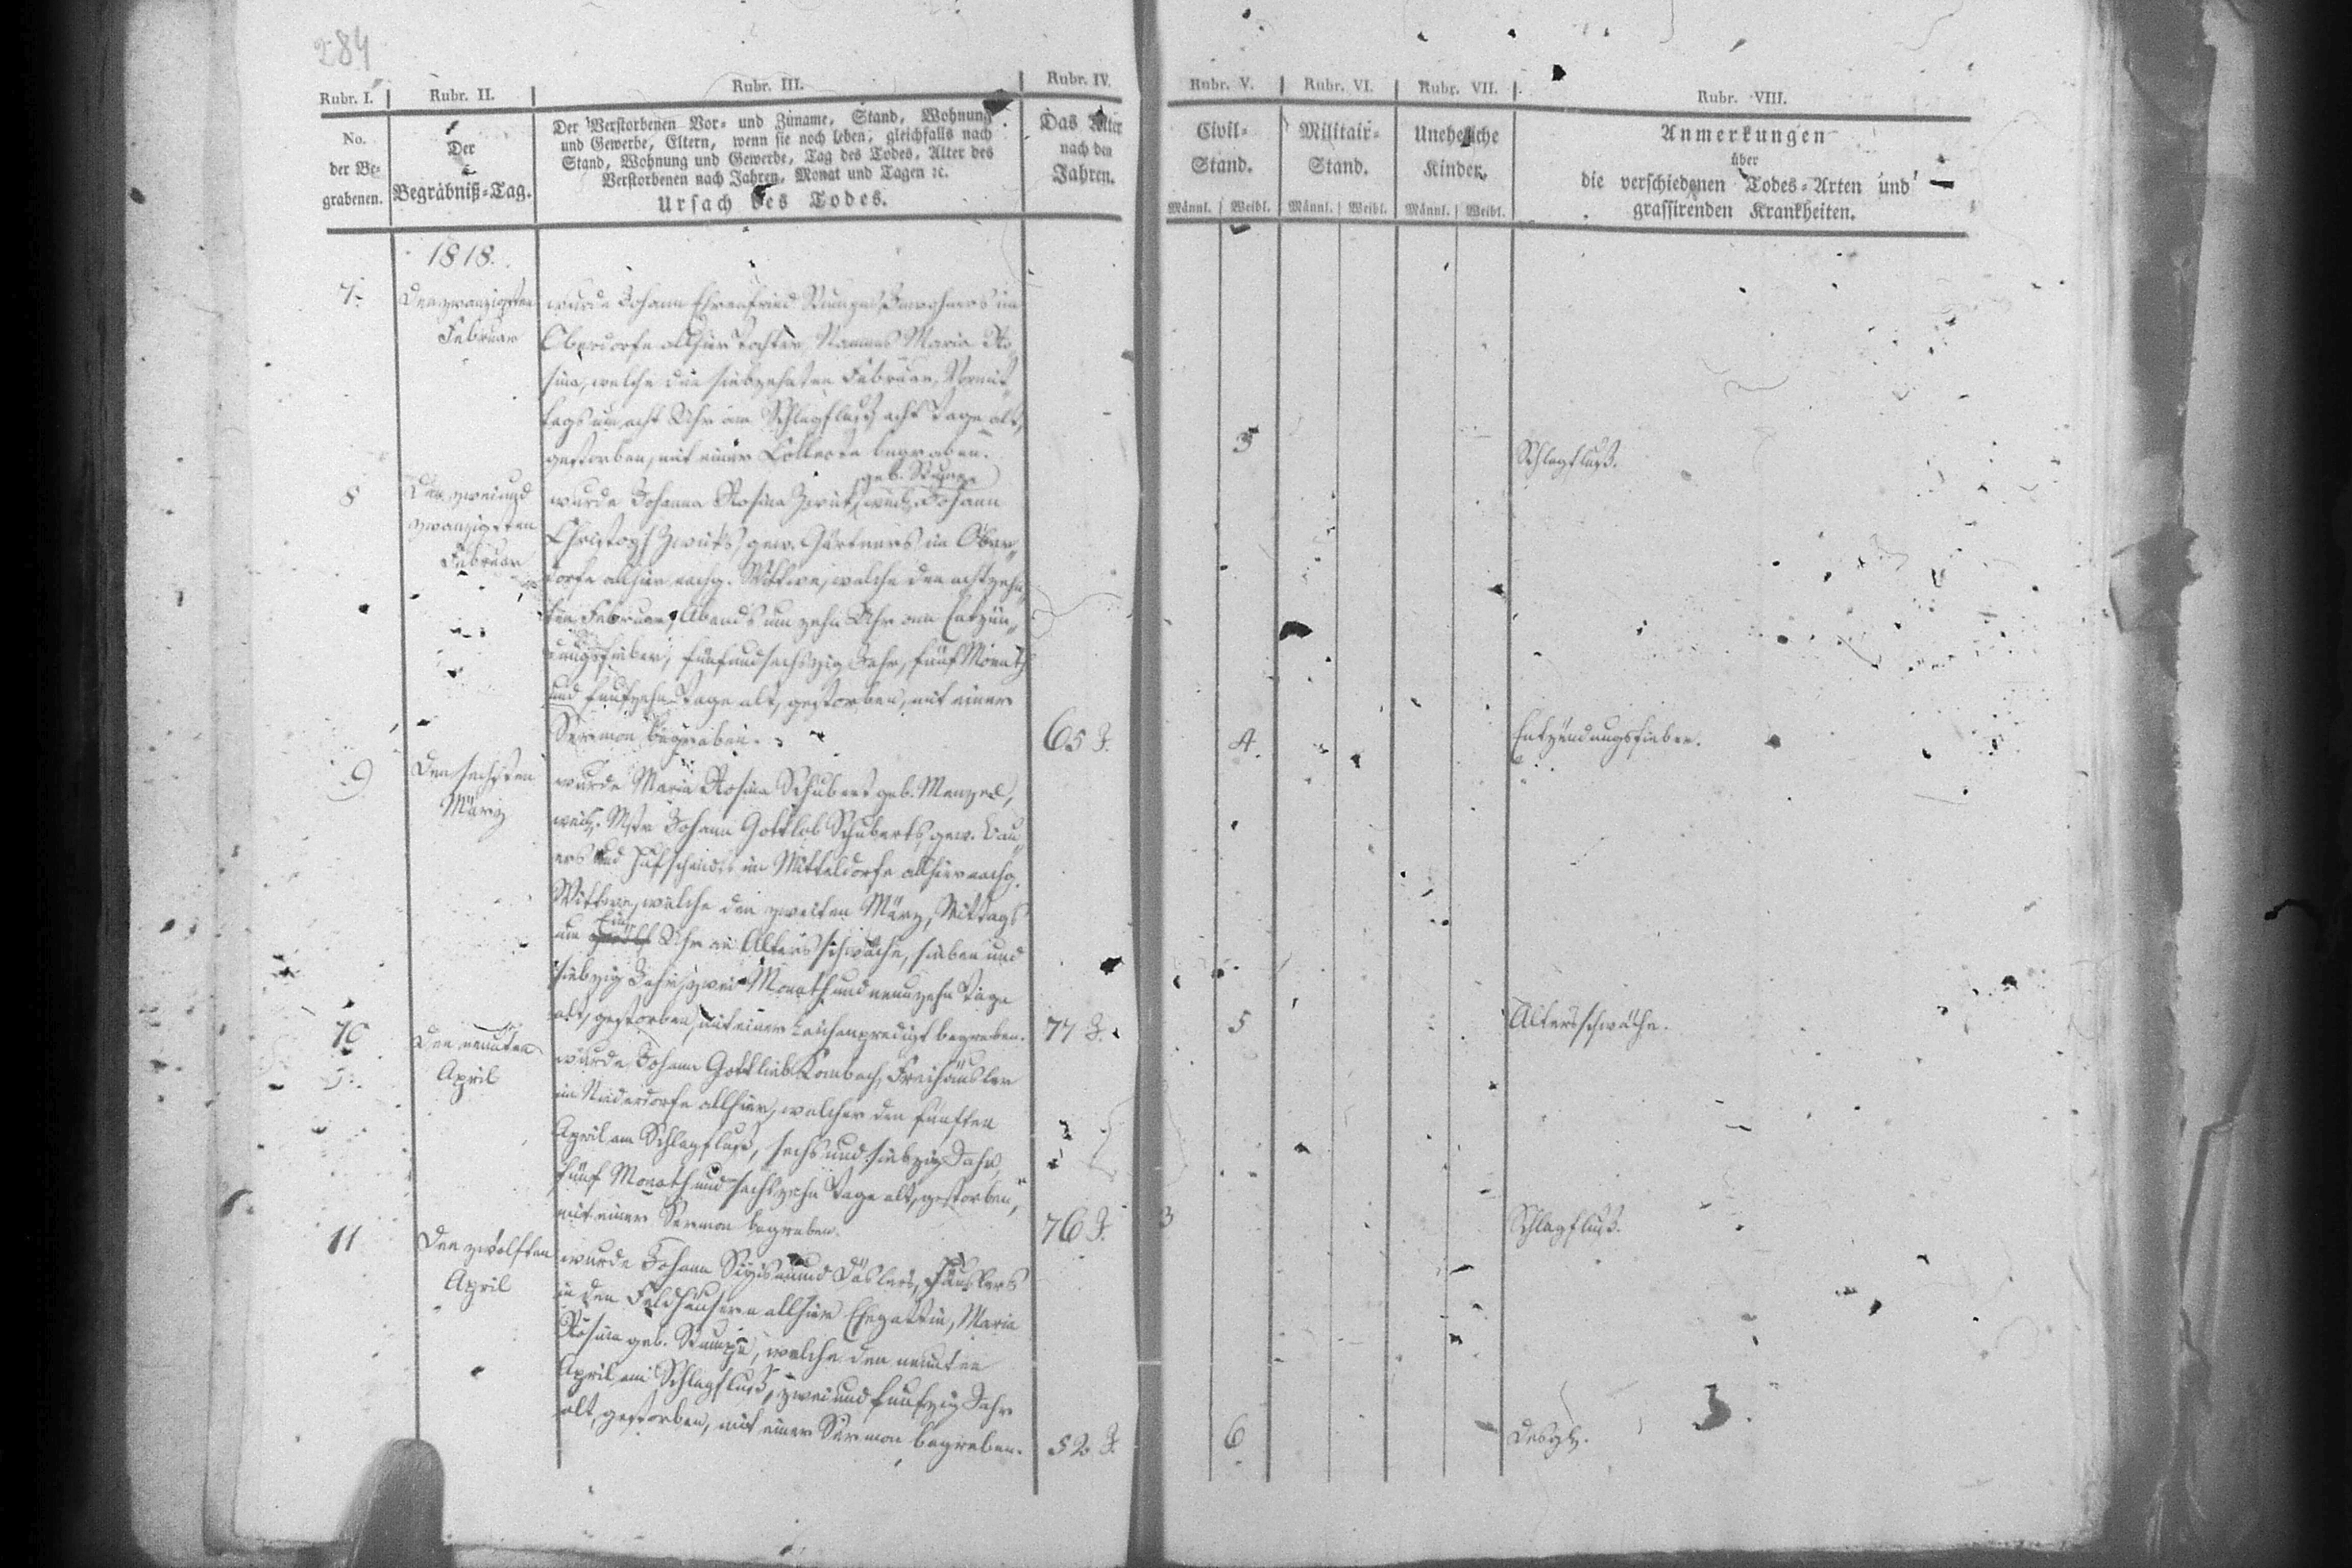 284
Rubr. I. Rubr. II. Rubr. III. Rubr. IV. Rubr. V. Rubr. VI. Rubr. VII. Rubr. VIII.
No.
der Be-
grabenen.
Der
Begräbniß-Tag.
Der Verstorbenen Vor- und Zuname, Stand, Wohnung
und Gewerbe, Eltern, wenn sie noch leben, gleichfalls nach
Stand, Wohnung und Gewerbe, Tag des Todes, Alter des
Verstorbenen nach Jahren, Monat und Tagen ꝛc.
Ursach des Todes.
Das Alter
nach den
Jahren.
Civil-
Stand.
Männl. Weibl.
Militair-
Stand.
Männl. Weibl.
Uneheliche
Kinder.
Männl. Weibl.
Anmerkungen
über
die verschiedenen Todes-Arten und
grassirenden Krankheiten.
1818.
7.
Den zwanzigsten
Februar
wurde Johann Ehrenfried Inwohners im
Oberdorfe allhier Tochter, Namens Maria Ro„
sina, welche den siebzehnten Februar, Vormit„
tags um acht Uhr am Schlagfluß, acht Tage alt,
gestorben, mit einer Collecte begraben.
3
Schlagfluß.
8
Den zwei und
zwanzigsten
Februar
geb.
wurde Johanna Rosina weil. Johann
Christoph gew. Gärtners im Ober„
dorfe allhier nachg. Wittwe, welche den achtzehn„
ten Februar, Abends um zehn Uhr am Entzün„
dungsfieber, fünfundsechszig Jahr, fünf Monath
und funfzehn Tage alt, gestorben, mit einer
Sermon begraben.
65 J.
4
Entzündungsfieber.
9
Den sechsten
März
wurde Maria Rosina Schubert geb. Menzel,
weil. Mstr Johann Gottlob Schuberts, gew. Bau„
ers und Hufschmids im Mitteldorfe allhier nachg.
Wittwe, welche den zweiten März, Mittags
um Ein Uhr an Altersschwäche, sieben und
siebzig Jahr, zwei Monath und neunzehn Tage
alt, gestorben, mit einer Leichenpredigt begraben.
77 J.
5
Altersschwäche.
10
Den neunten
April
wurde Johann Gottlieb Freihäusler
im Niederdorfe allhier, welcher den fünften
April am Schlagfluß, sechs und siebzig Jahr,
fünf Monath und sechszehn Tage alt, gestorben,
mit einer Sermon begraben.
76 J.
3
Schlagfluß.
11
Den zwölften
April
wurde Johann Sigismund Häuslers
in den Feldhäusern allhier Ehegattin, Maria
Rosina geb. welche den neunten
April am Schlagfluß, zwei und funfzig Jahr
alt, gestorben, mit einer Sermon begraben.
52 J.
6
Desgl.